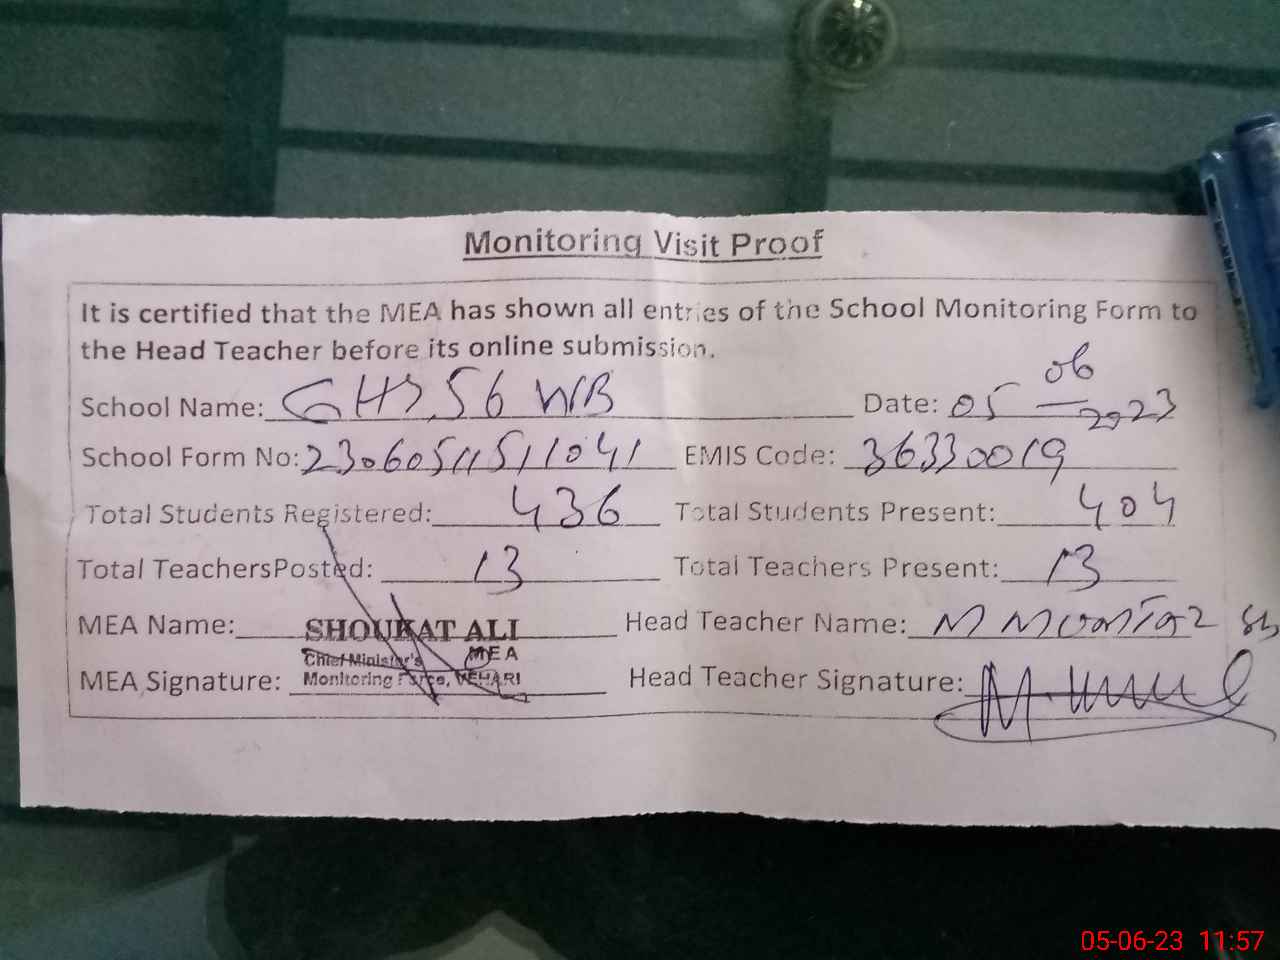 Monitoring Visit Proof
It is certified that the MEA has shown all entries of the School Monitoring Form to
the Head Teacher before its online submission.
School Name: GHS 56 WB Date: 05 06 2023
School Form No: 23060511511041 EMIS Code: 36330019
Total Students Registered: 436 Total Students Present: 404
Total TeachersPosted: 13 Total Teachers Present: 13
MEA Name: SHOUKAT ALI Head Teacher Name: M Mumtaz
MEA
Chief Minister's
Monitoring Force, VEHARI
MEA Signature: Head Teacher Signature:
05-06-23 11:57